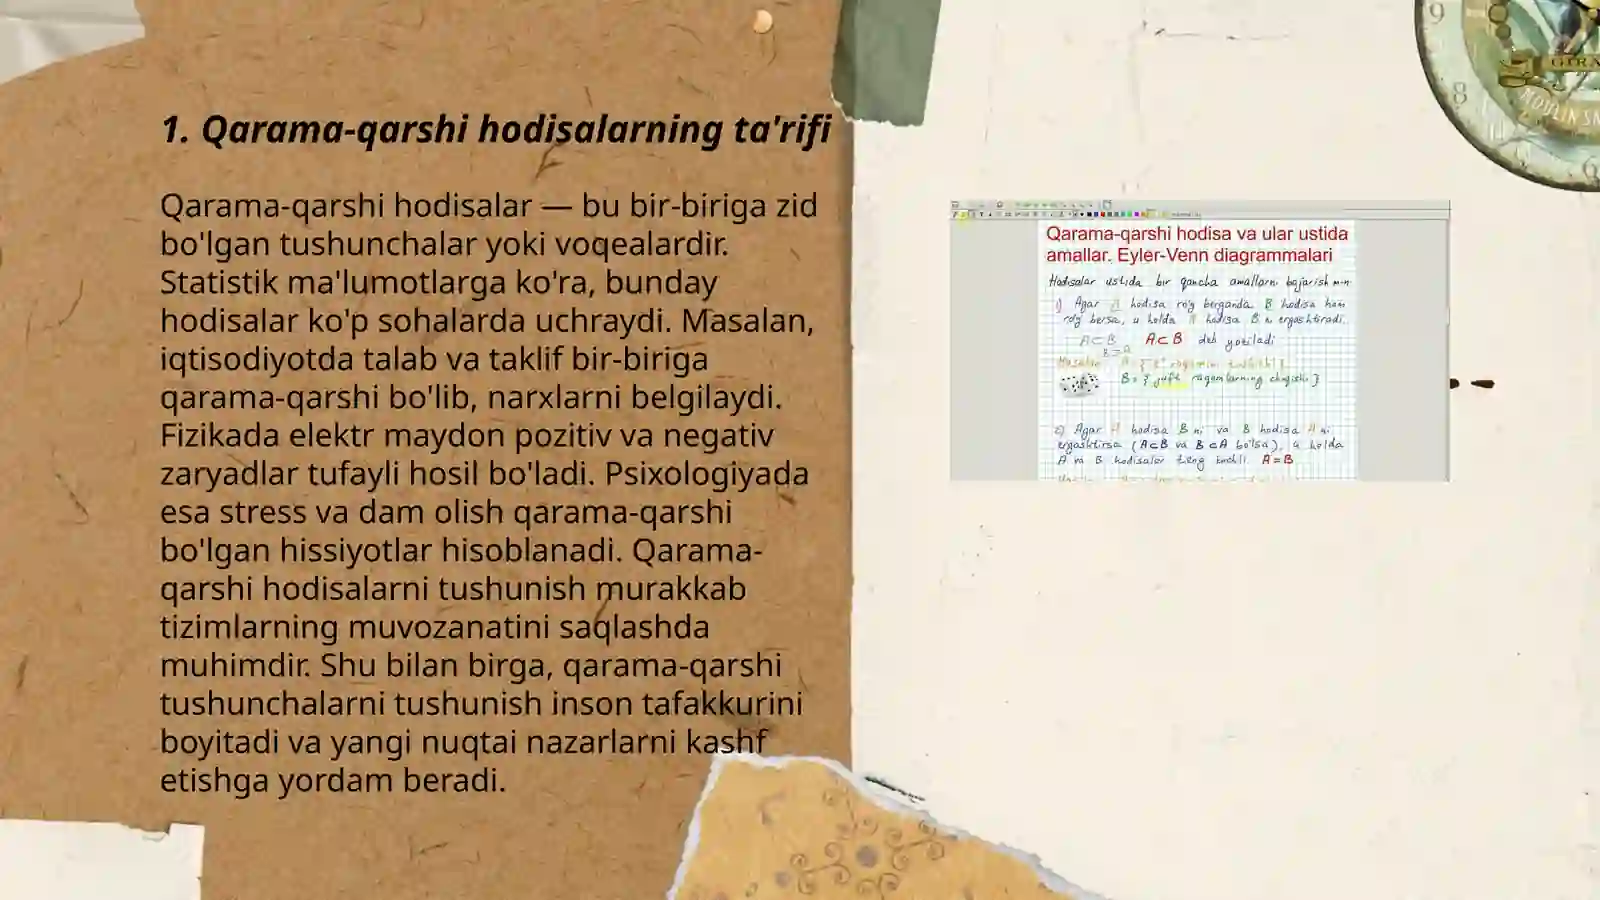 1. Qarama-qarshi hodisalarning ta'rifi
Qarama-qarshi hodisalar — bu bir-biriga zid
bo'lgan tushunchalar yoki voqealardir.
Statistik ma'lumotlarga ko'ra, bunday
hodisalar ko'p sohalarda uchraydi. Masalan,
iqtisodiyotda talab va taklif bir-biriga
qarama-qarshi bo'lib, narxlarni belgilaydi.
Fizikada elektr maydon pozitiv va negativ
zaryadlar tufayli hosil bo'ladi. Psixologiyada
esa stress va dam olish qarama-qarshi
bo'lgan hissiyotlar hisoblanadi. Qarama-
qarshi hodisalarni tushunish murakkab
tizimlarning muvozanatini saqlashda
muhimdir. Shu bilan birga, qarama-qarshi
tushunchalarni tushunish inson tafakkurini
boyitadi va yangi nuqtai nazarlarni kashf
etishga yordam beradi.
Qarama-qarshi hodisa va ular ustida
amallar. Eyler-Venn diagrammalari
Hodisalar ustida bir qancha amallarni bajarish m-n
1) Agar A hodisa ro'y berganda B hodisa ham
ro'y bersa, u holda A hodisa B ni ergashtiradi.
A⊂B A⊂B deb yoziladi
Masalan
B = { juft raqamlarning chiqishi }
2) Agar A hodisa B ni va B hodisa A ni
ergashtirsa (A⊂B va B⊂A bo'lsa), u holda
A va B hodisalar teng kuchli A=B
9
8
6
MOULIN